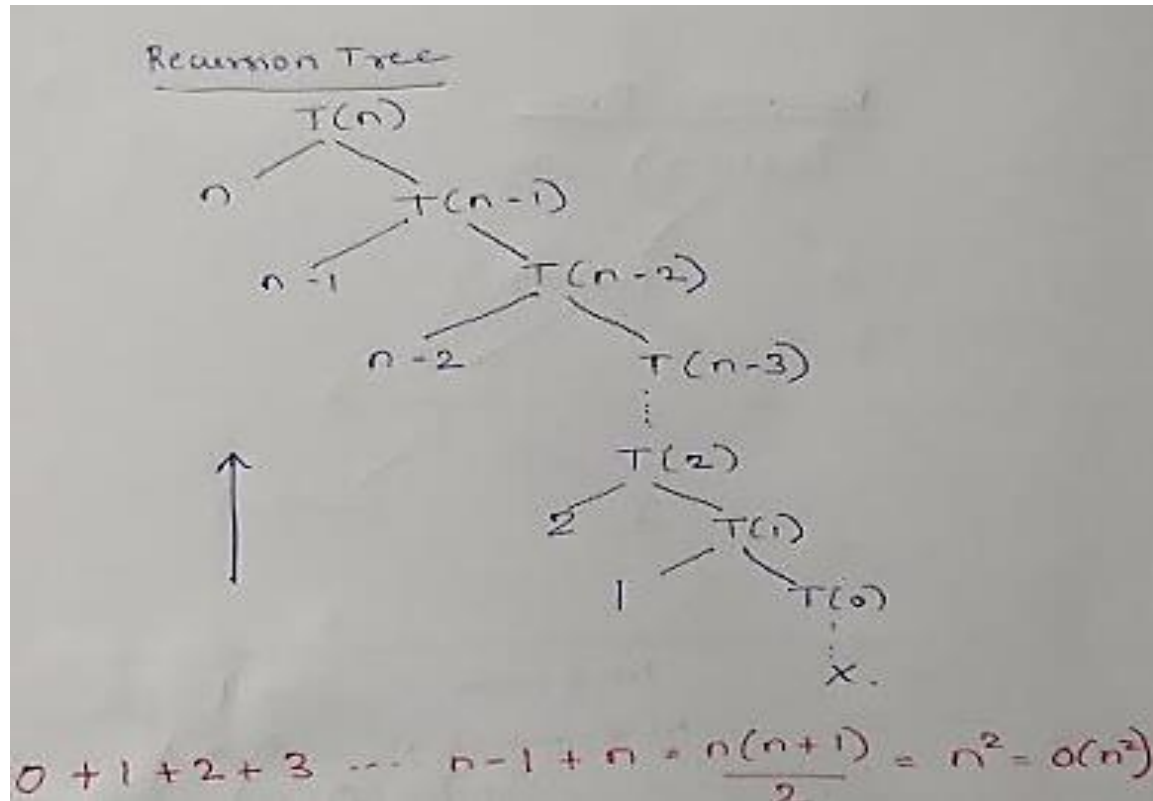 Recursion Tree
T(n)
n T(n-1)
n-1 T(n-2)
n-2 T(n-3)
T(2)
2 T(1)
1 T(0)
x.
0 + 1 + 2 + 3 ... n-1 + n = n(n+1)/2 = n² = O(n²)